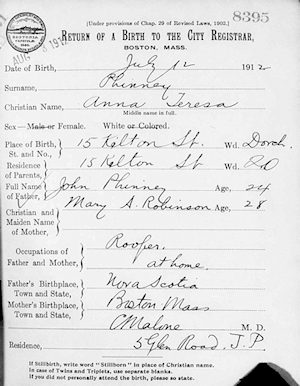 (Under provisions of Chap. 29 of Revised Laws, 1902.)
8395
RETURN OF A BIRTH TO THE CITY REGISTRAR,
BOSTON, MASS.
AUG 3 1912
Date of Birth, July 12 1912
Surname, Phinney
Christian Name, Anna Teresa
Middle name in full.
Sex—Male or Female. White or Colored.
Place of Birth, St. and No., 15 Kelton St. Wd. Dorch.
Residence of Parents, 15 Kelton St Wd. 20
Full Name of Father, John Phinney Age, 24
Christian and Maiden Name of Mother, Mary A. Robinson Age, 28
Occupations of Father and Mother, Roofer.
at home.
Father's Birthplace, Town and State, Nova Scotia
Mother's Birthplace, Town and State, Boston Mass
C Malone M. D.
Residence, 5 Glen Road. J. P
If Stillbirth, write word "Stillborn" in place of Christian name.
In case of Twins and Triplets, use separate blanks.
If you did not personally attend the birth, please so state.